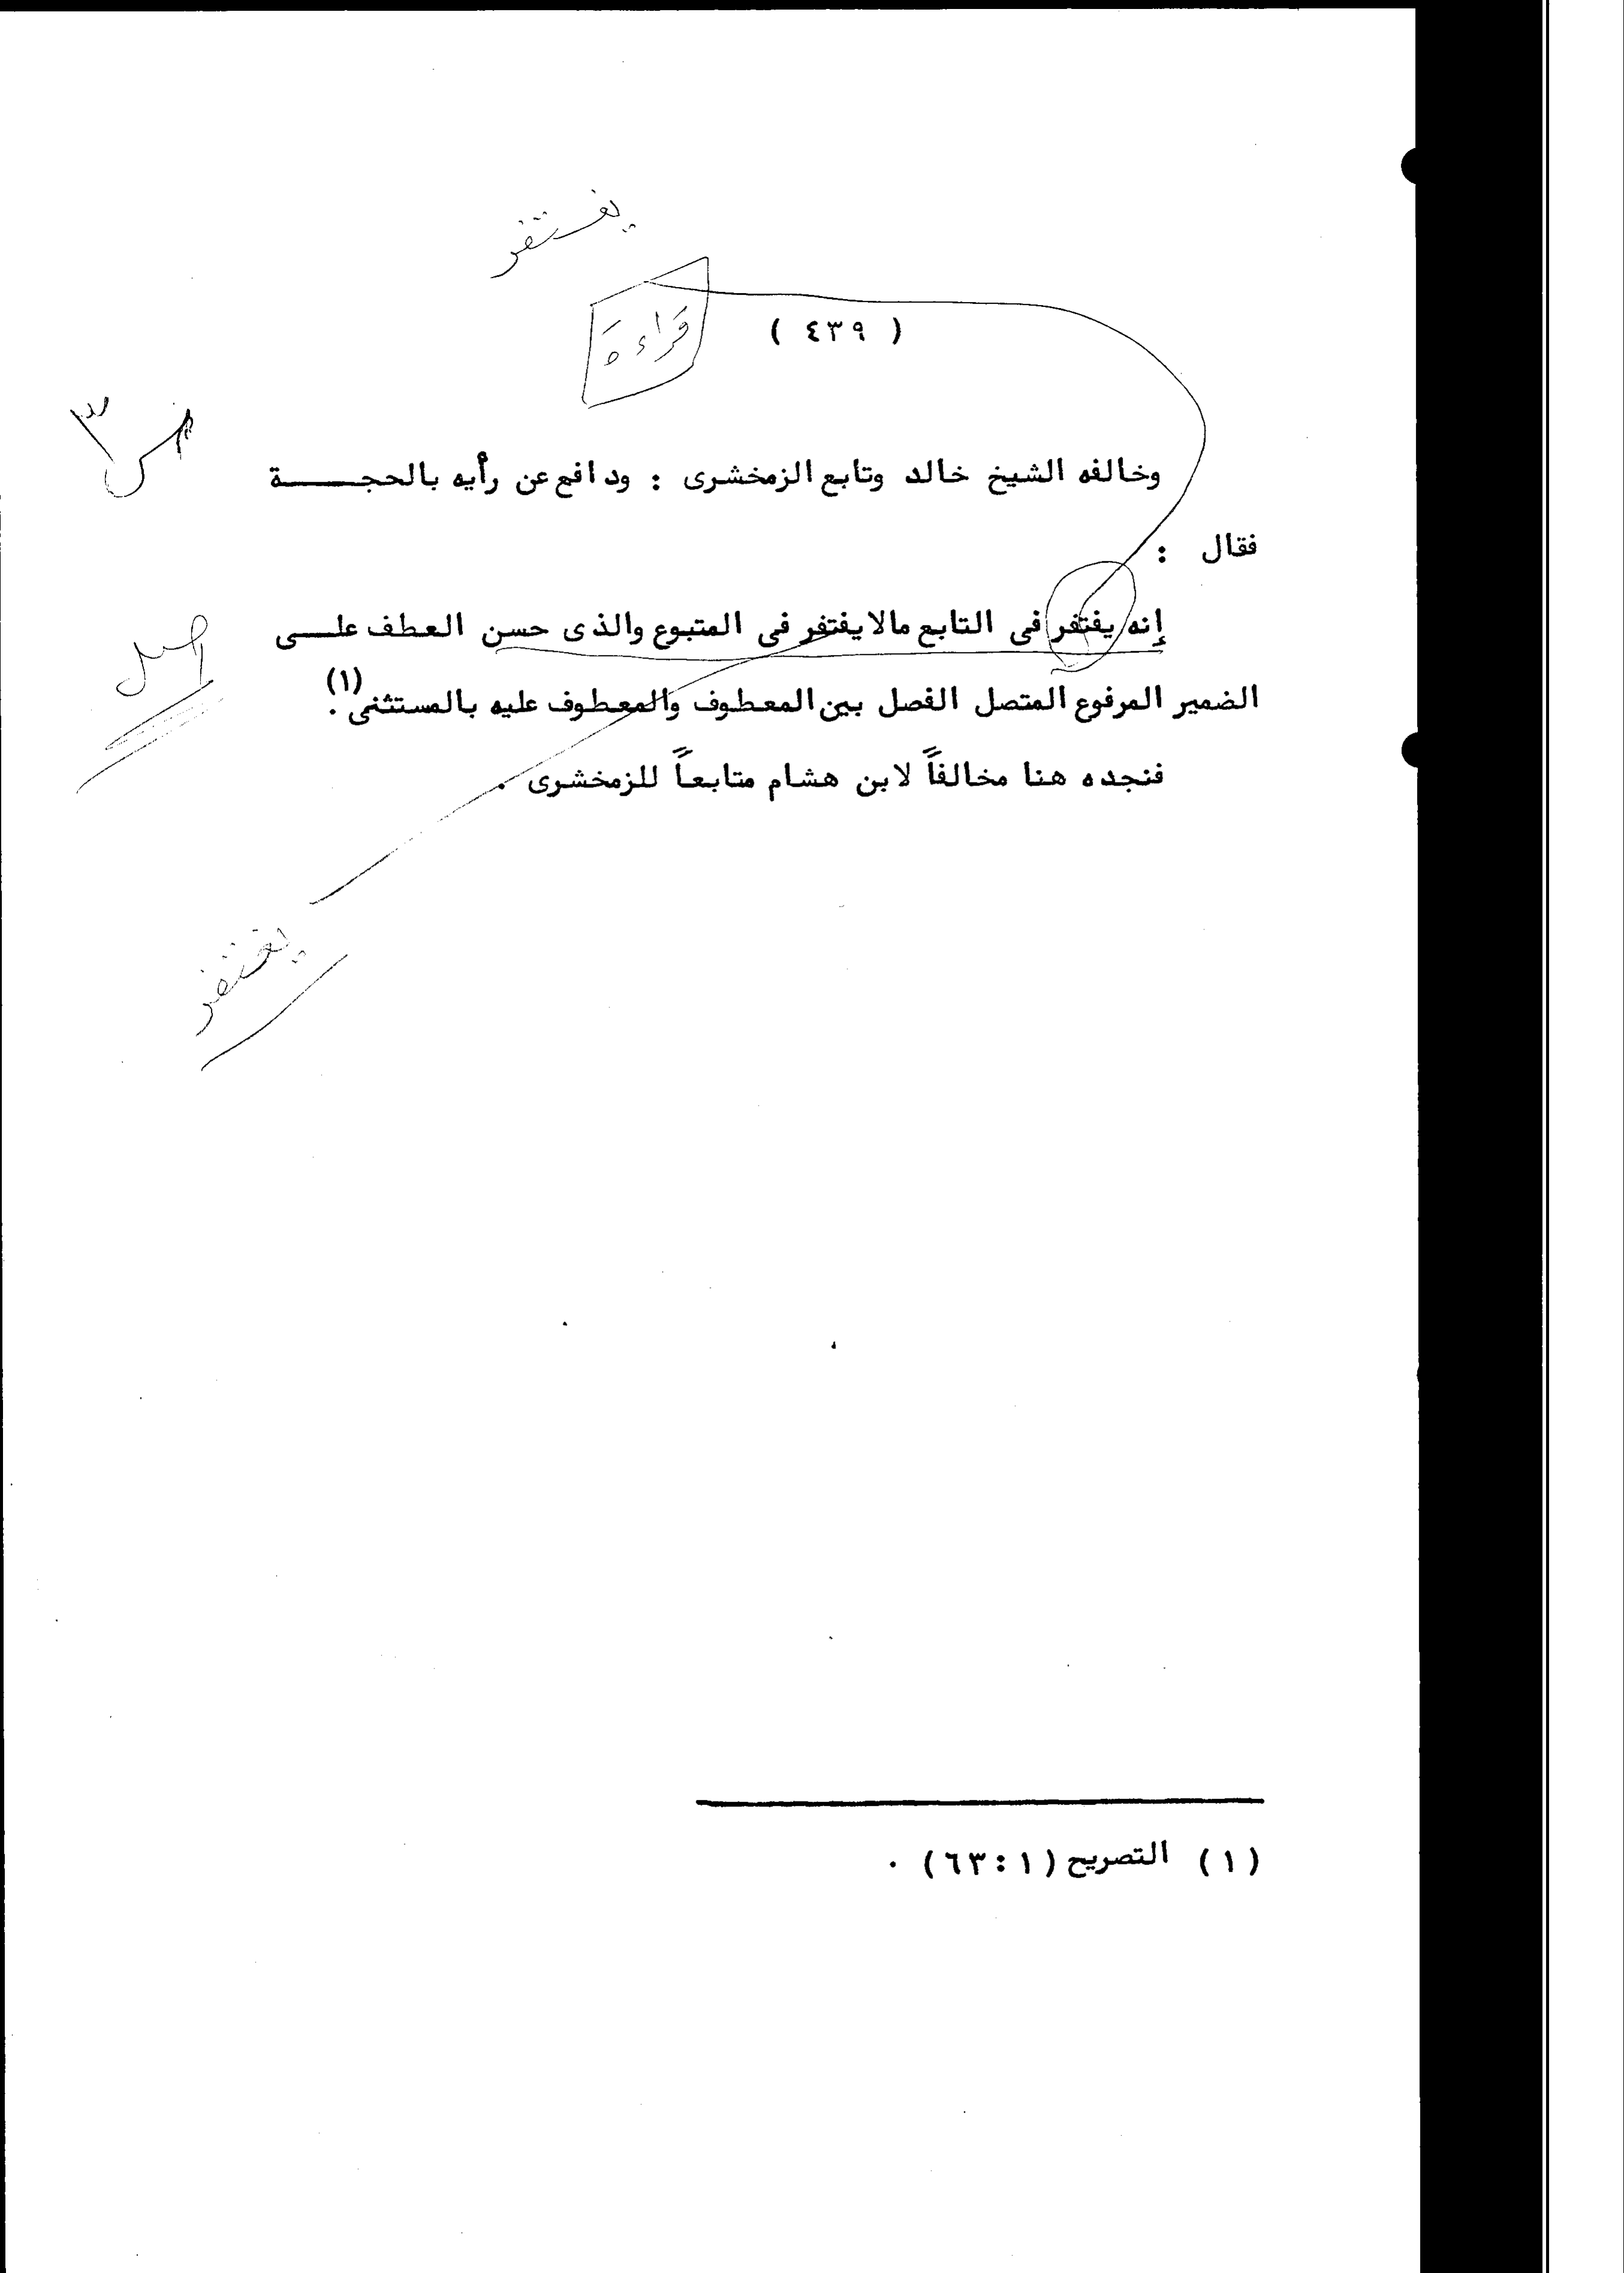 يغتفر
قراءة
( ٤٣٩ )
وخالفه الشيخ خالد وتابع الزمخشرى : ودافع عن رأيه بالحجـــــة
فقال :
إنه يفتفر فى التابع مالا يفتفر فى المتبوع والذى حسن العطف علـــى
الضمير المرفوع المتصل الفصل بين المعطوف والمعطوف عليه بالمستثنى (١).
فنجده هنا مخالفاً لابن هشام متابعاً للزمخشرى .
يغتفر
(١) التصريح (٦٣:١) .